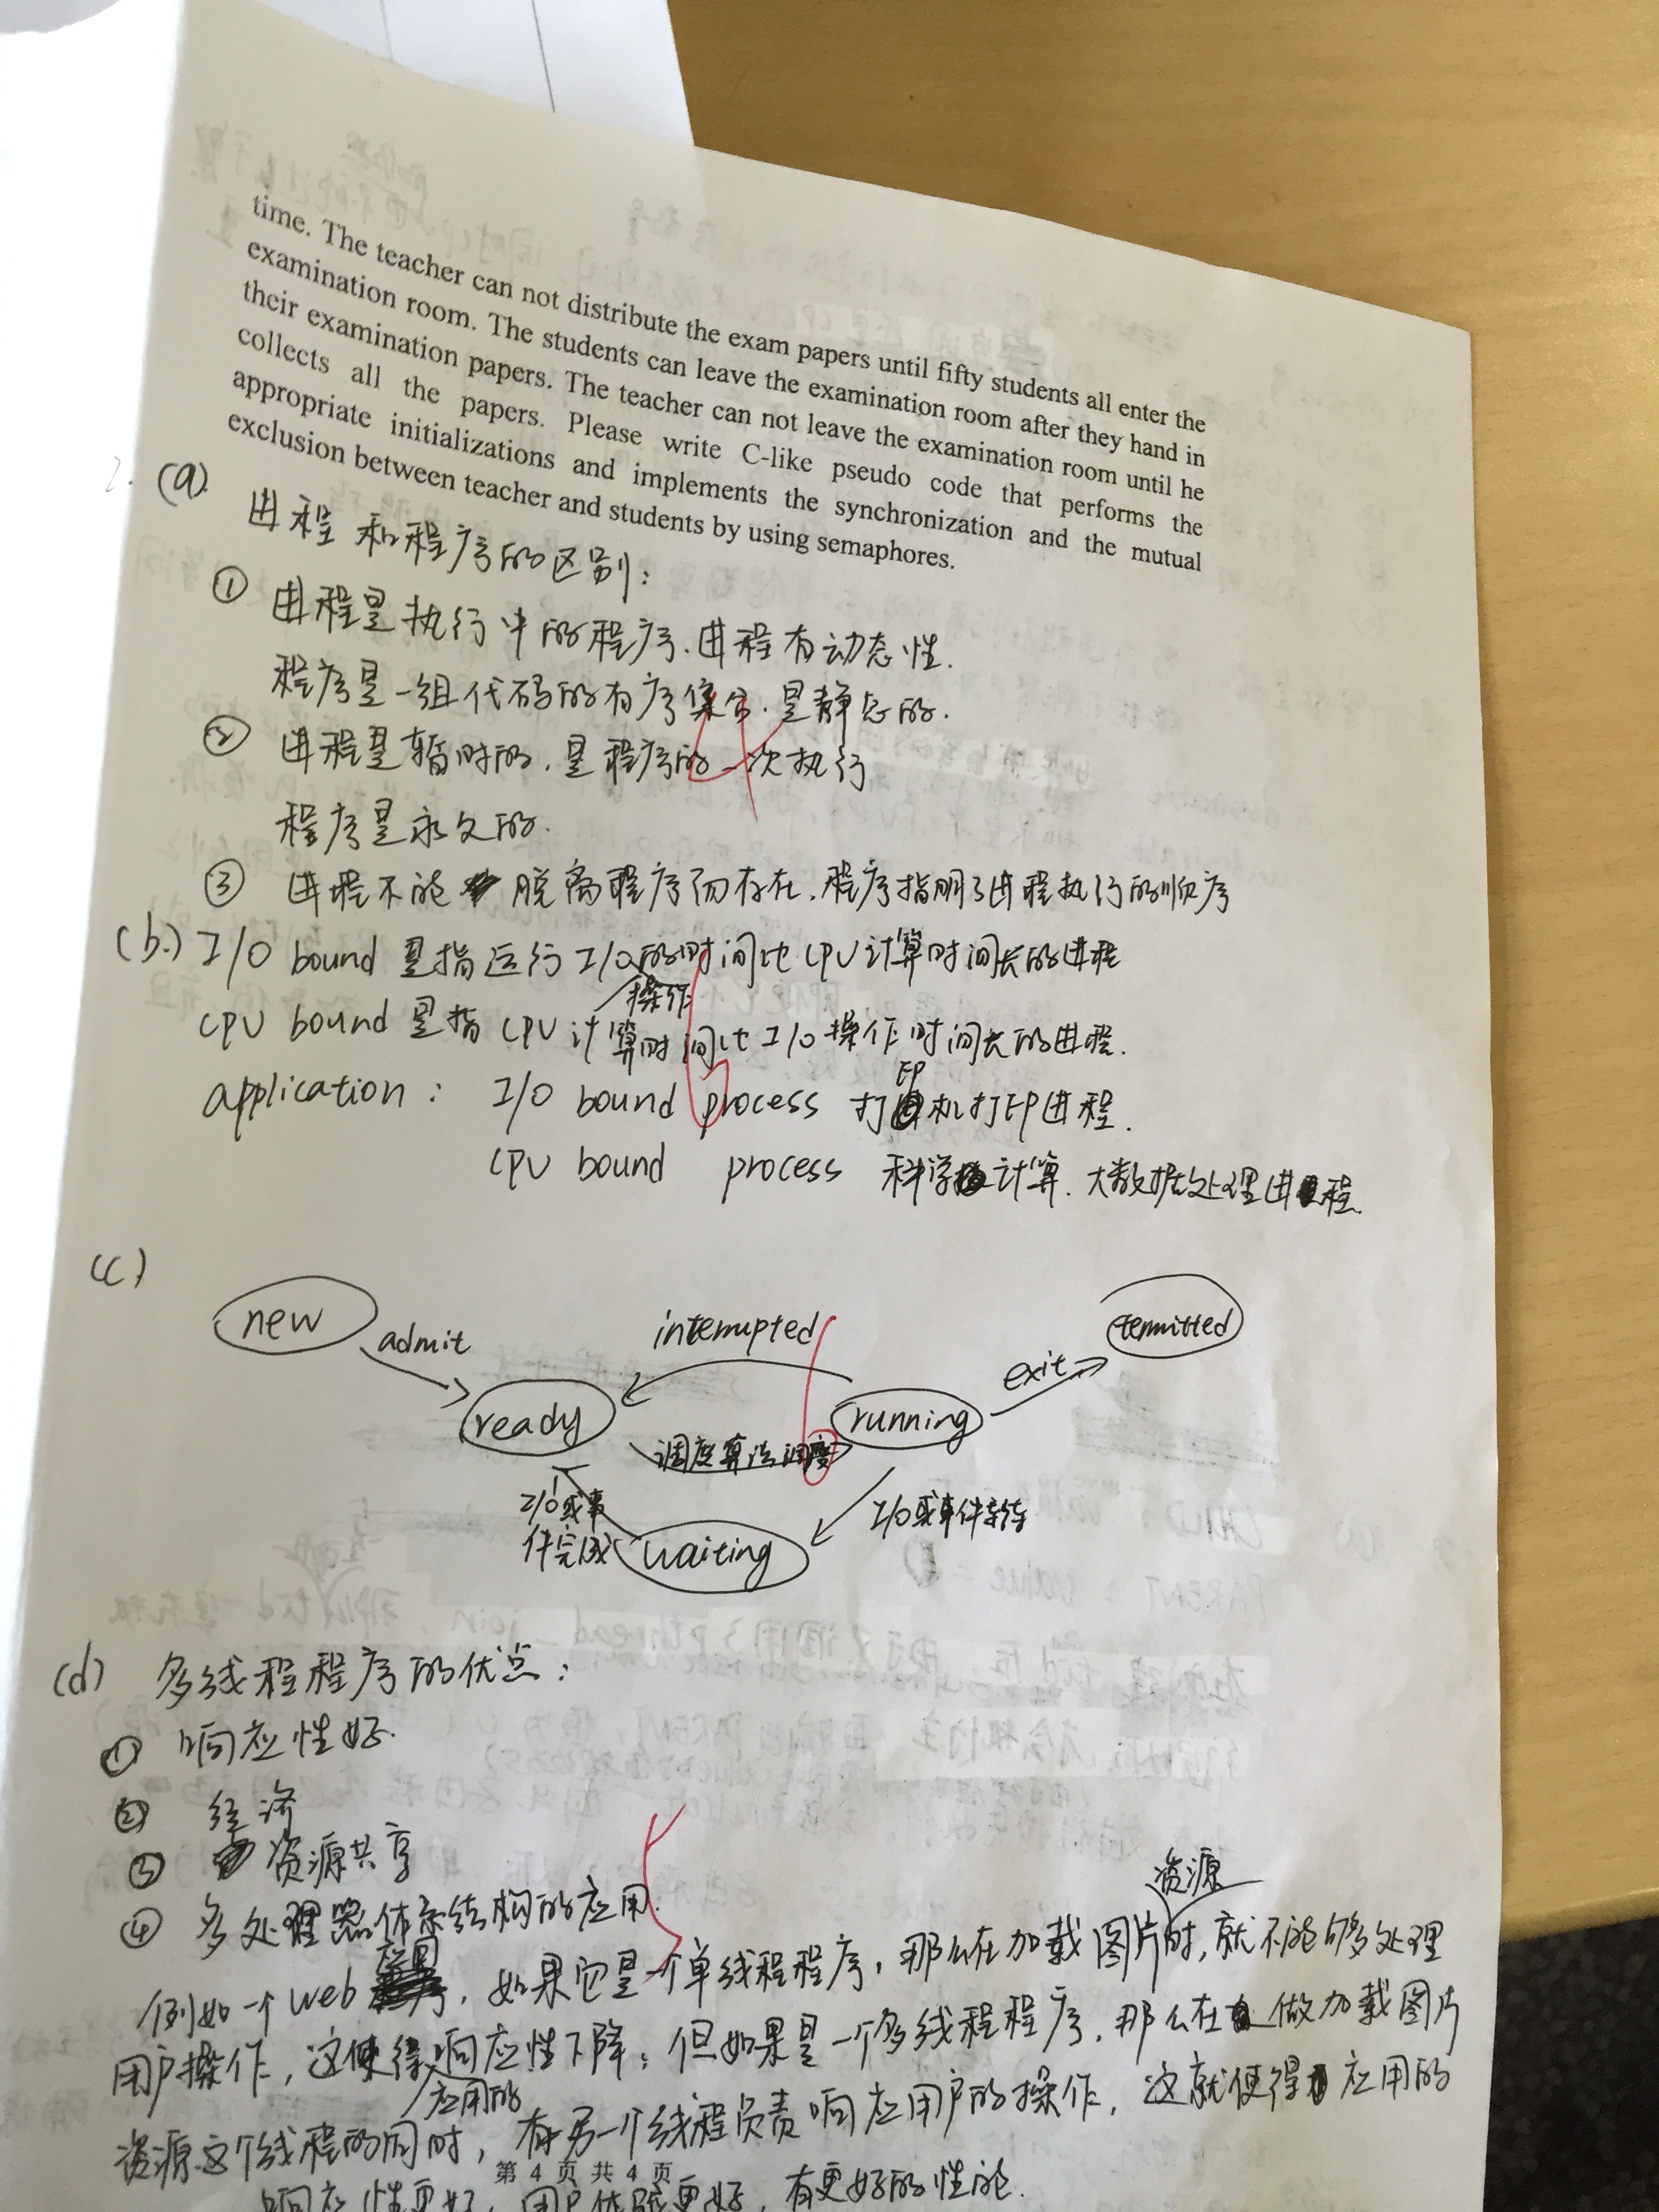 time. The teacher can not distribute the exam papers until fifty students all enter the
examination room. The students can leave the examination room after they hand in
their examination papers. The teacher can not leave the examination room until he
collects all the papers. Please write C-like pseudo code that performs the
appropriate initializations and implements the synchronization and the mutual
exclusion between teacher and students by using semaphores.
(a)
进程和程序的区别:
① 进程是执行中的程序.进程有动态性.
程序是一组代码的有序集合.是静态的.
② 进程是暂时的,是程序的一次执行
程序是永久的.
③ 进程不能脱离程序而存在,程序指明了进程执行的顺序
(b.) I/O bound 是指运行I/O操作的时间比CPU计算时间长的进程
CPU bound 是指CPU计算时间比I/O操作时间长的进程.
application: I/O bound process 打印机打印进程.
CPU bound process 科学计算.大数据处理进程.
(c)
new
admit
interrupted
termitted
exit
ready
running
调度算法调度
I/O或事
件完成
waiting
I/O或事件等待
(d) 多线程程序的优点:
① 响应性好.
② 经济
③ 资源共享
④ 多处理器体系结构的应用.
例如一个web应用,如果它是一个单线程程序,那么在加载图片资源时,就不能够处理
用户操作,这使得应用的响应性下降;但如果是一个多线程程序,那么在做加载图片
资源这个线程的同时,有另一个线程负责响应用户的操作,这就使得应用的
响应性更好,用户体验更好,有更好的性能.
第 4 页 共 4 页